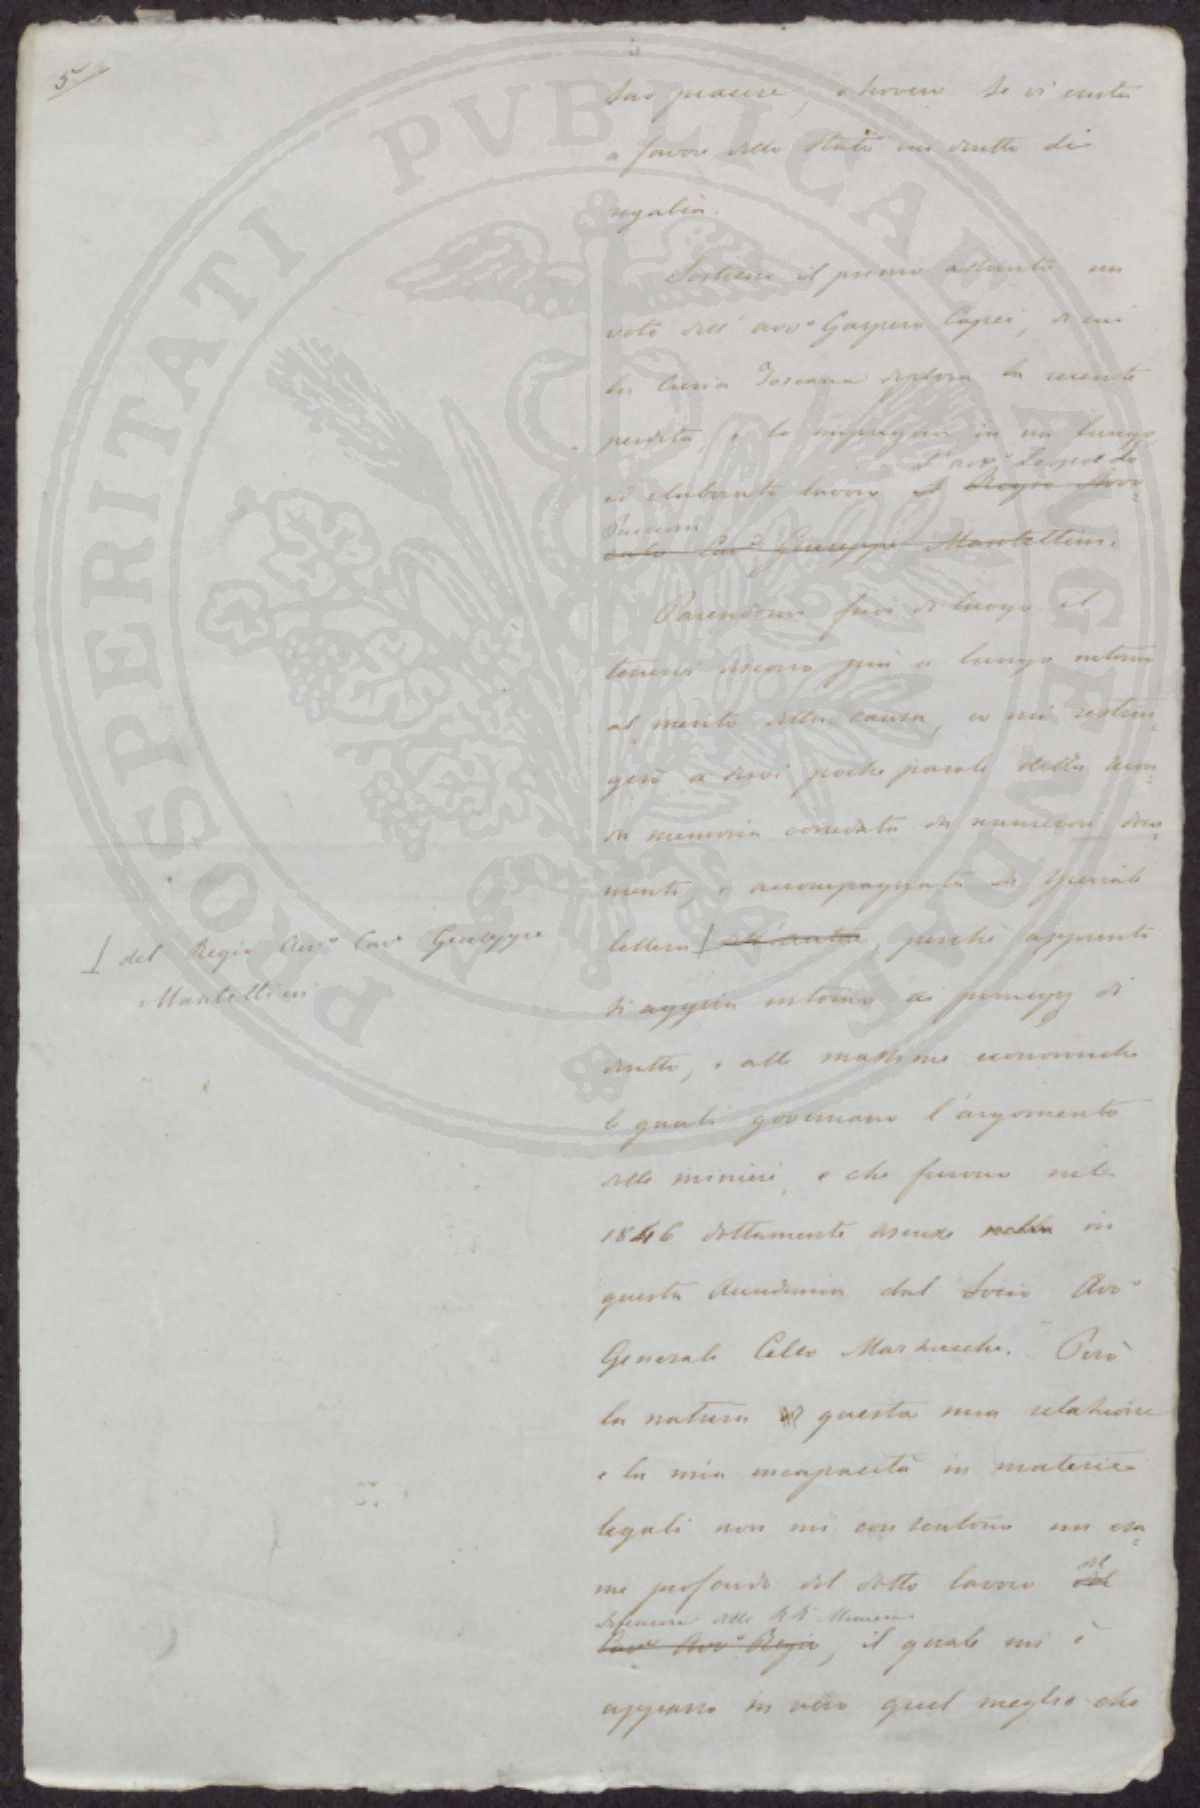 5
suo piacere, ovvero se vi esista
a favore dello Stato un diritto di
regalia.
Sostiene il primo assunto un
voto dell' Avv.o Gaspero Capei, di cui
la Curia Toscana deplora la recente
perdita, e lo impugna in un lungo
L'avv.o Leopoldo
ed elaborato lavoro il Regio Avvo
cato Cav.e Giuseppe Mantellini.
Parendomi fuor di luogo il
tenervi discorso più a lungo intorno
al merito della causa, io mi restrin=
gerò a dirvi poche parole della secon=
da memoria corredata da numerosi docu=
menti, e accompagnata da speciale
lettera dell'autore, perchè appunto
del Regio Avv.o Cav.e Giuseppe
Mantellini
si aggira intorno ai principj di
diritto, e alle massime economiche
le quali governano l'argomento
delle miniere, e che furono nel
1846 dottamente discusse nella in
questa Accademia dal Socio Avv.o
Generale Celso Marzucchi. Però
la natura di questa mia relazione
e la mia incapacità in materie
legali non mi consentono un esa=
me profondo del dotto lavoro del
del
difensore delle RR Miniere
Cav.e Avv.o Regio, il quale mi è
apparso in vero quel meglio che
PROSPERITATI PVBLICAE AVGENDAE